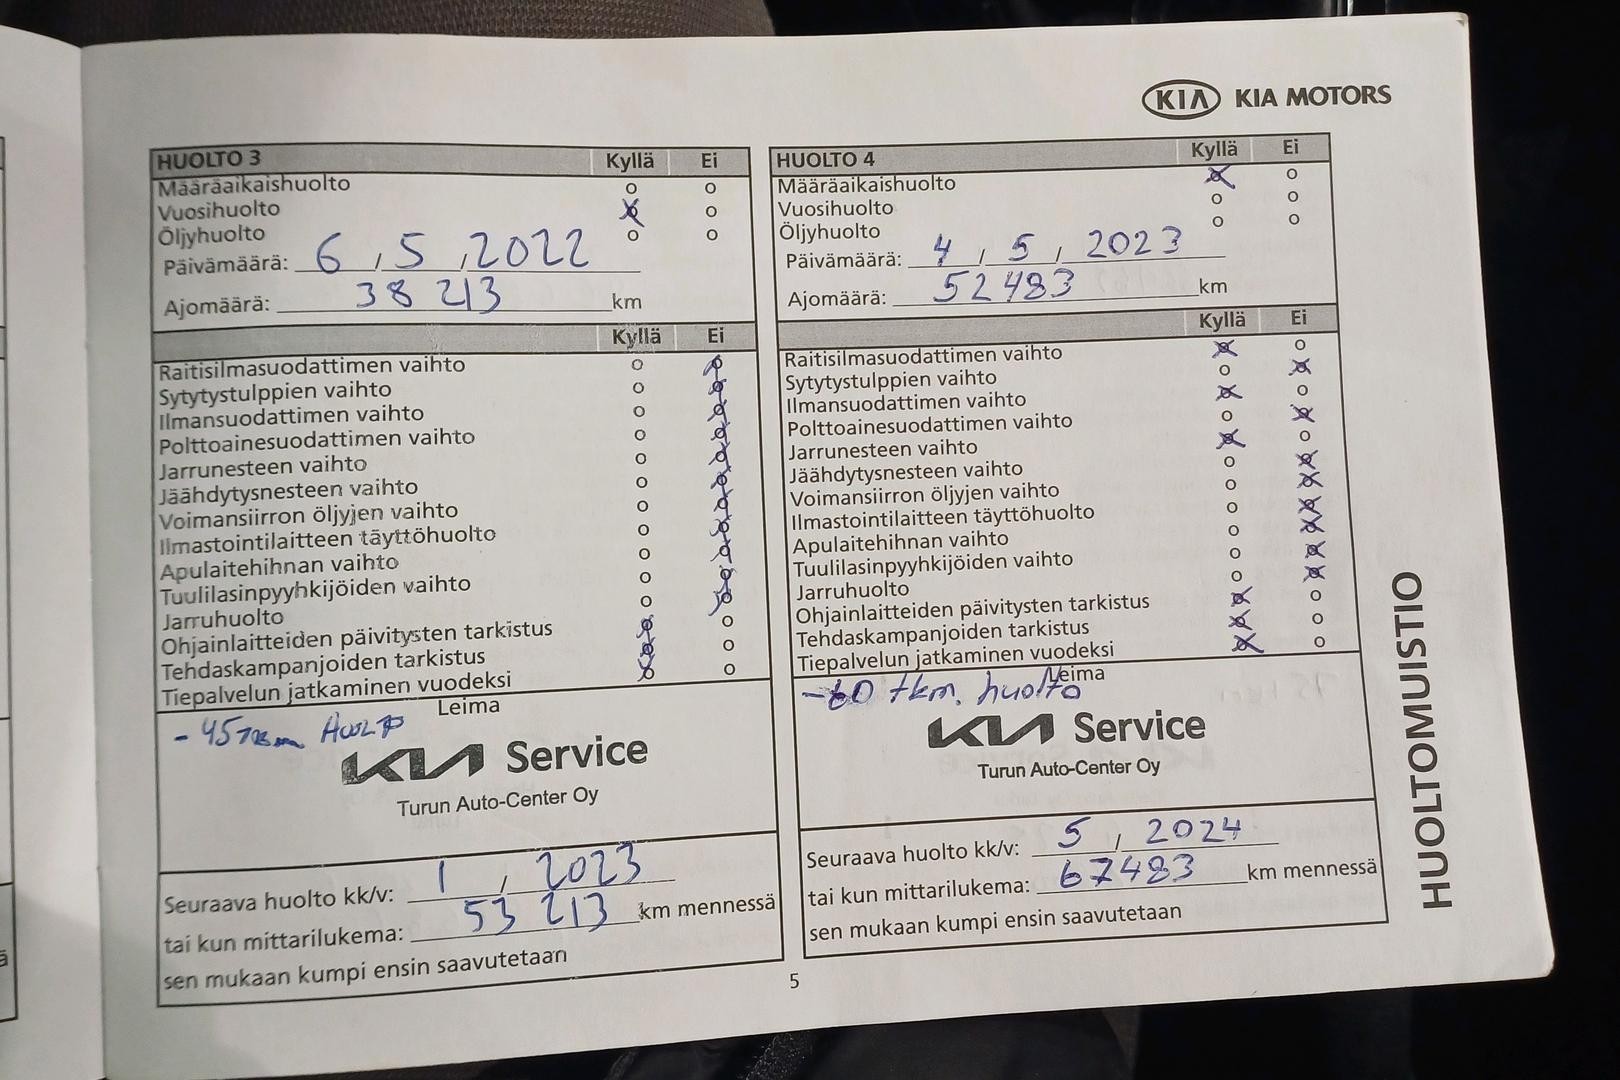 KIA KIA MOTORS
HUOLTO 3 Kyllä Ei
Määräaikaishuolto o o
Vuosihuolto x o
Öljyhuolto o o
Päivämäärä: 6 , 5 , 2022
Ajomäärä: 38 213 km
Kyllä Ei
Raitisilmasuodattimen vaihto o x
Sytytystulppien vaihto o x
Ilmansuodattimen vaihto o x
Polttoainesuodattimen vaihto o x
Jarrunesteen vaihto o x
Jäähdytysnesteen vaihto o x
Voimansiirron öljyjen vaihto o x
Ilmastointilaitteen täyttöhuolto o x
Apulaitehihnan vaihto o x
Tuulilasinpyyhkijöiden vaihto o x
Jarruhuolto o x
Ohjainlaitteiden päivitysten tarkistus x o
Tehdaskampanjoiden tarkistus x o
Tiepalvelun jatkaminen vuodeksi x o
Leima
- 45 HUOLTO
KIA Service
Turun Auto-Center Oy
Seuraava huolto kk/v: 1 , 2023
tai kun mittarilukema: 53 213 km mennessä
sen mukaan kumpi ensin saavutetaan
HUOLTO 4 Kyllä Ei
Määräaikaishuolto x o
Vuosihuolto o o
Öljyhuolto o o
Päivämäärä: 4 , 5 , 2023
Ajomäärä: 52483 km
Kyllä Ei
Raitisilmasuodattimen vaihto x o
Sytytystulppien vaihto o x
Ilmansuodattimen vaihto x o
Polttoainesuodattimen vaihto o x
Jarrunesteen vaihto x o
Jäähdytysnesteen vaihto o x
Voimansiirron öljyjen vaihto o x
Ilmastointilaitteen täyttöhuolto o x
Apulaitehihnan vaihto o x
Tuulilasinpyyhkijöiden vaihto o x
Jarruhuolto o x
Ohjainlaitteiden päivitysten tarkistus x o
Tehdaskampanjoiden tarkistus x o
Tiepalvelun jatkaminen vuodeksi x o
Leima
- 60 tkm. huolto
KIA Service
Turun Auto-Center Oy
Seuraava huolto kk/v: 5 , 2024
tai kun mittarilukema: 67483 km mennessä
sen mukaan kumpi ensin saavutetaan
HUOLTOMUISTIO
5